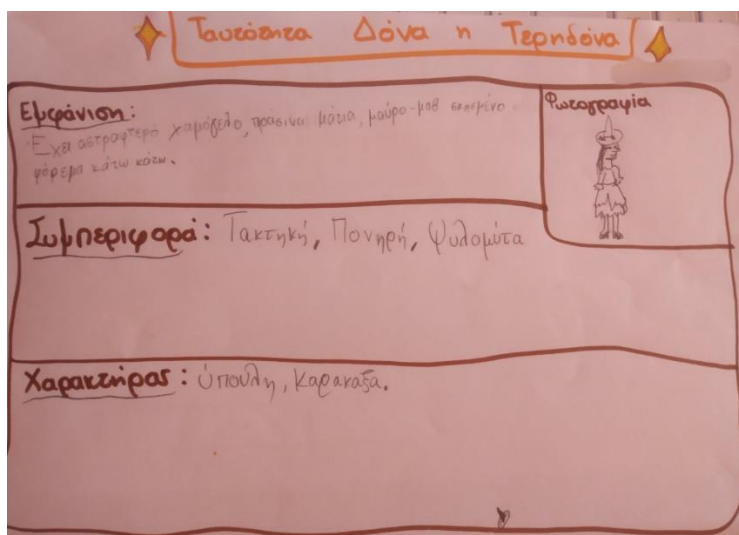 Ταυτότητα Δόνα η Τερηδόνα
Εμφάνιση:
Έχει αστραφτερό χαμόγελο, πράσινα μάτια, μαύρο-μοβ σκισμένο
φόρεμα κάτω κάτω.
Φωτογραφία
Συμπεριφορά: Τακτηκή, Πονηρή, Ψυλομύτα
Χαρακτήρας: ύπουλη, Καρακαξα.